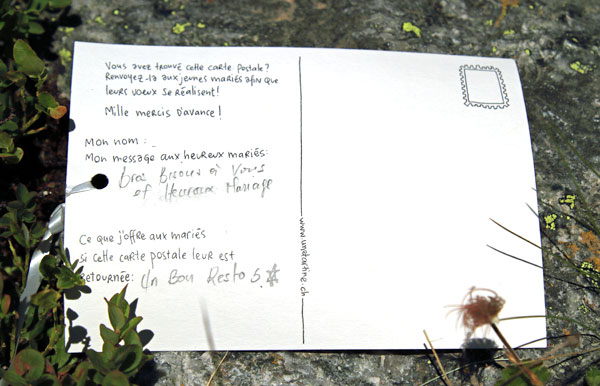 Vous avez trouvé cette carte postale?
Renvoyez-la aux jeunes mariés afin que
leurs voeux se réalisent!
Mille mercis d'avance!
Mon nom:
Mon message aux heureux mariés:
Gros Bisous à Vous
et Heureux Mariage
Ce que j'offre aux mariés
si cette carte postale leur est
retournée: Un Bon Resto 5
www.unetartine.ch